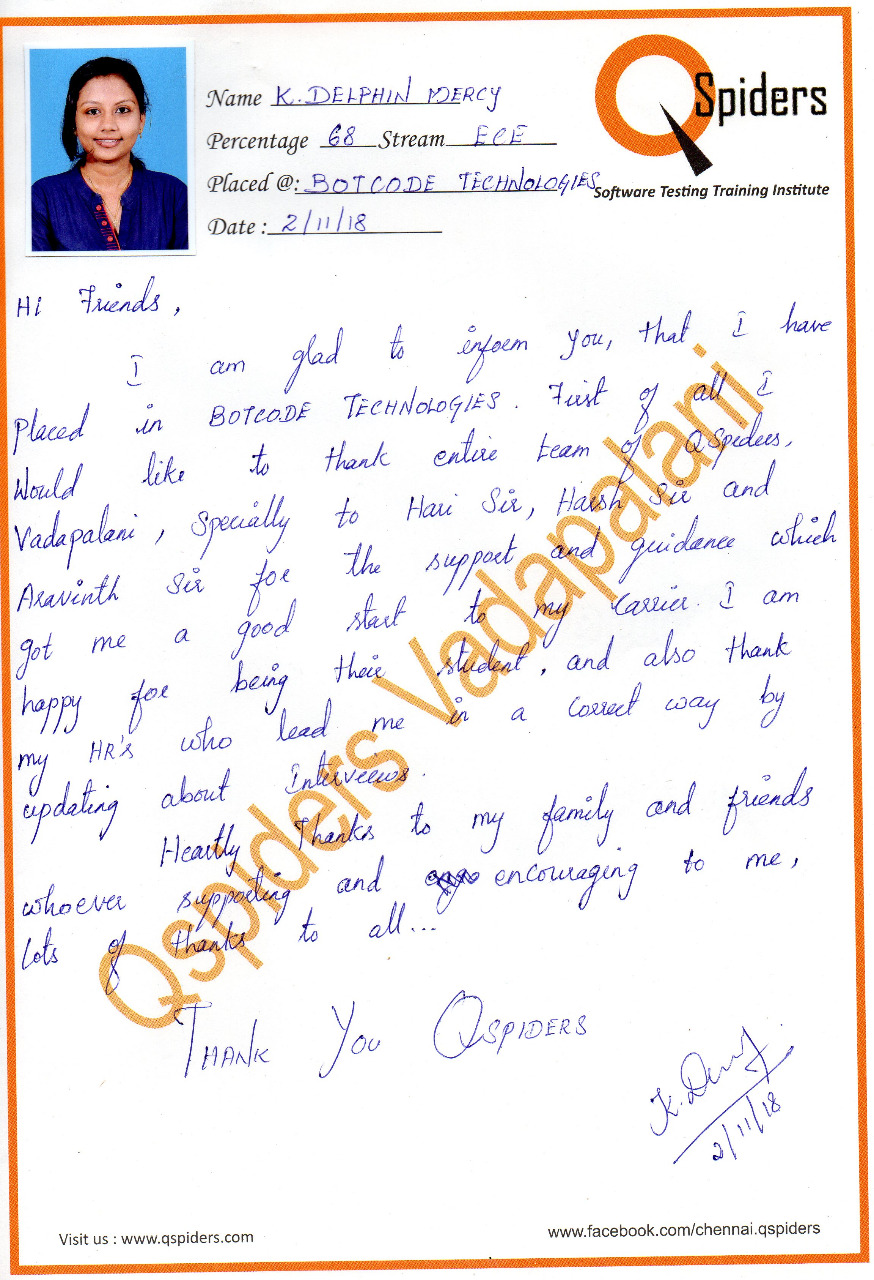 Name K. DELPHIN MERCY
Percentage 68 Stream ECE
Placed @: BOTCODE TECHNOLOGIES
Date : 2/11/18
QSpiders
Software Testing Training Institute
Hi Friends,
I am glad to inform you, that I have
Placed in BOTCODE TECHNOLOGIES. First of all I
Would like to thank entire team of QSpiders,
Vadapalani, Specially to Hari Sir, Harsh Sir and
Aravinth Sir for the support and guidance which
got me a good start to my Carrier. I am
happy for being their student, and also thank
my HR's who lead me in a correct way by
updating about Interviews.
Heartly Thanks to my family and friends
whoever supporting and encouraging to me,
Lots of thanks to all...
THANK YOU QSPIDERS
K. Dmy
2/11/18
Qspiders Vadapalani
Visit us : www.qspiders.com
www.facebook.com/chennai.qspiders